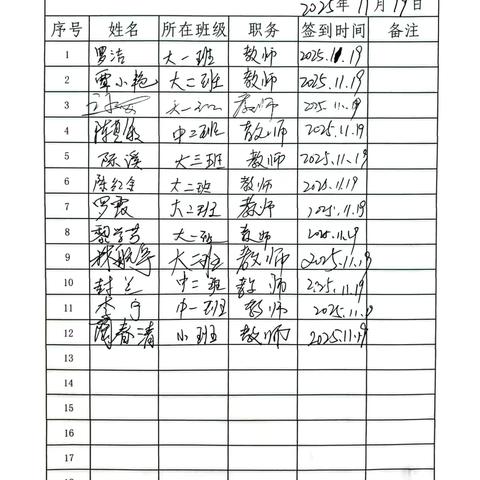 2025年11月19日
序号 姓名 所在班级 职务 签到时间 备注
1 罗洁 大一班 教师 2025.11.19
2 覃小艳 大二班 教师 2025.11.19
3 教师 2025.11.19
4 中二班 教师 2025.11.19
5 陈溪 大三班 教师 2025.11.19
6 陈红全 大二班 教师 2025.11.19
7 罗霞 大二班 教师 2025.11.19
8 大二班 教师 2025.11.19
9 大二班 教师 2025.11.19
10 封兰 中二班 教师 2025.11.19
11 中一班 教师 2025.11.9
12 蔺春清 小班 教师 2025.11.19
13
14
15
16
17